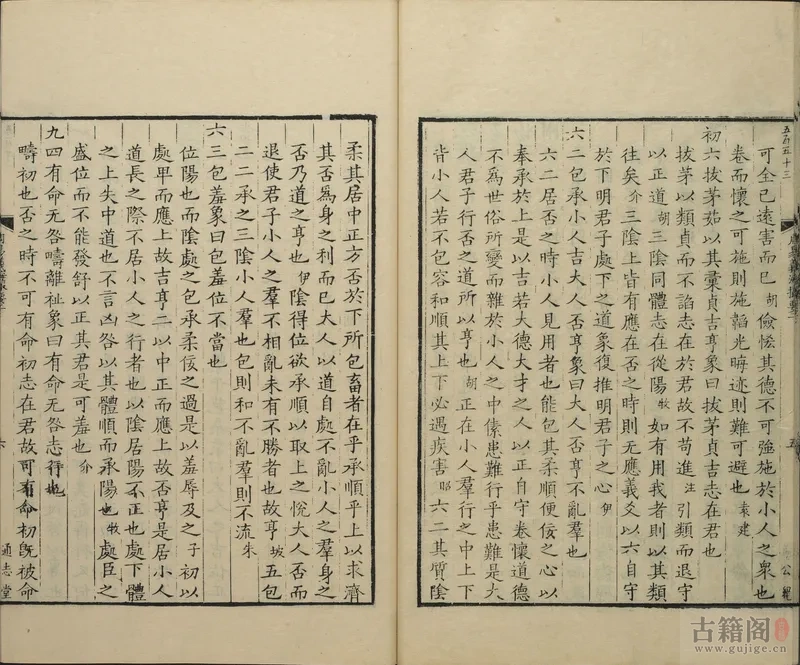 五百五十三
可全己遠害而已胡儉慝其德不可強施於小人之衆也
卷而懷之可施則施韜光晦迹則難可避也袁建
初六拔茅茹以其彙貞吉亨象曰拔茅貞吉志在君也
拔茅以類貞而不諂志在於君故不苟進注引類而退守
以正道胡三陰同體志在從陽牧如有用我者則以其類
往矣介三陰上皆有應在否之時則无應義爻以六自守
於下明君子處下之道象復推明君子之心伊
六二包承小人吉大人否亨象曰大人否亨不亂羣也
六二居否之時小人見用者也能包其柔順便佞之心以
奉承於上是以吉若大德大才之人以正自守卷懷道德
不爲世俗所變而雜於小人之中傃患難行乎患難是大
人君子行否之道所以亨也胡正在小人羣行之中上下
皆小人若不包容和順其上下必遇疾害昭六二其質陰
五
公
柔其居中正方否於下所包畜者在乎承順乎上以求濟
其否爲身之利而已大人以道自處不亂小人之羣身之
否乃道之亨也伊陰得位欲承順以取上之悅大人否而
退使君子小人之羣不相亂未有不勝者也故亨坡五包
二二承之三陰小人羣也包則和不亂羣則不流朱
六三包羞象曰包羞位不當也
位陽也而陰處之包承柔佞之過是以羞辱及之子初以
處卑而應上故吉亨二以中正而應上故否亨是居小人
道長之際不居小人之行者也以陰居陽不正也處下體
之上失中道也不言凶咎以其體順而承陽也牧處臣之
盛位而不能發舒以正其君是可羞也介
九四有命无咎疇離祉象曰有命无咎志行也
疇初也否之時不可有命初志在君故可有命初既被命
六
通志堂
古籍阁
www.gujige.cn